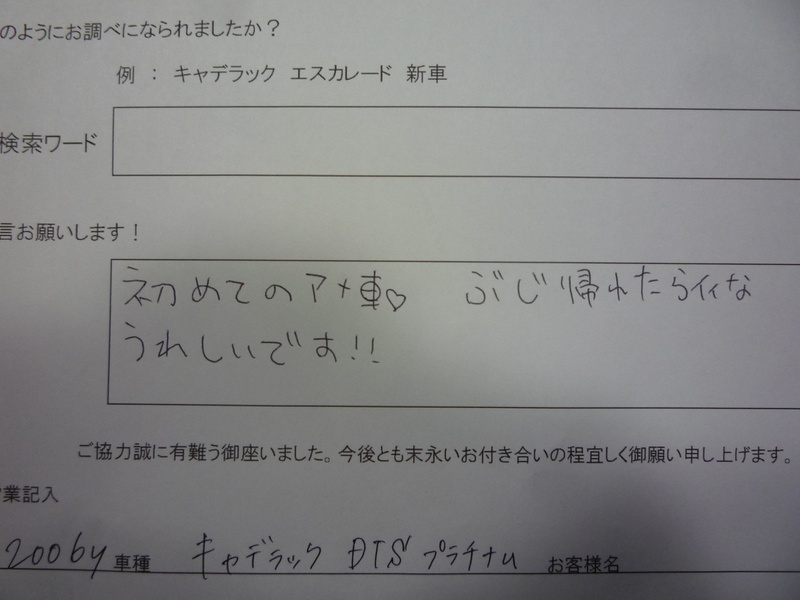 のようにお調べになられましたか？
例 ： キャデラック エスカレード 新車
検索ワード
言お願いします！
初めてのアメ車♡ ぶじ帰れたらイイな
うれしいです!!
ご協力誠に有難う御座いました。今後とも末永いお付き合いの程宜しく御願い申し上げます。
業記入
2006y 車種 キャデラック DTS プラチナム お客様名